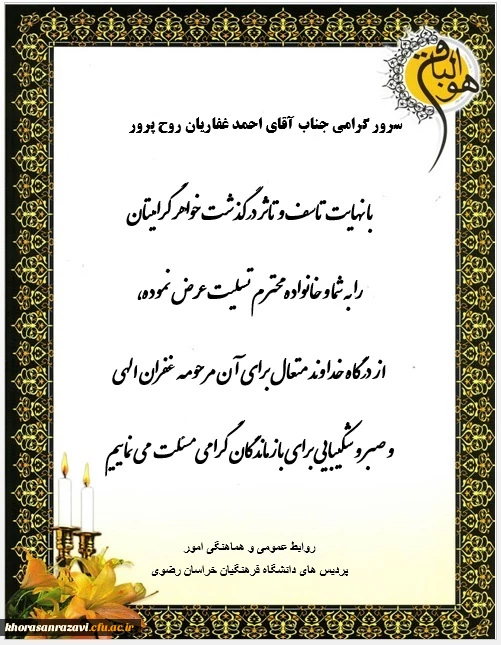 هوالباقی
سرور گرامی جناب آقای احمد غفاریان روح پرور
با نهایت تاسف و تاثر درگذشت خواهر گرامیتان
را به شما و خانواده محترم تسلیت عرض نموده،
از درگاه خداوند متعال برای آن مرحومه غفران الهی
و صبر و شکیبایی برای بازماندگان گرامی مسئلت می نماییم
روابط عمومی و هماهنگی امور
پردیس های دانشگاه فرهنگیان خراسان رضوی
khorasanrazavi.cfu.ac.ir